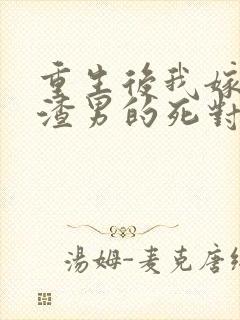 重生後我嫁
渣男的死對
湯姆-麥克唐